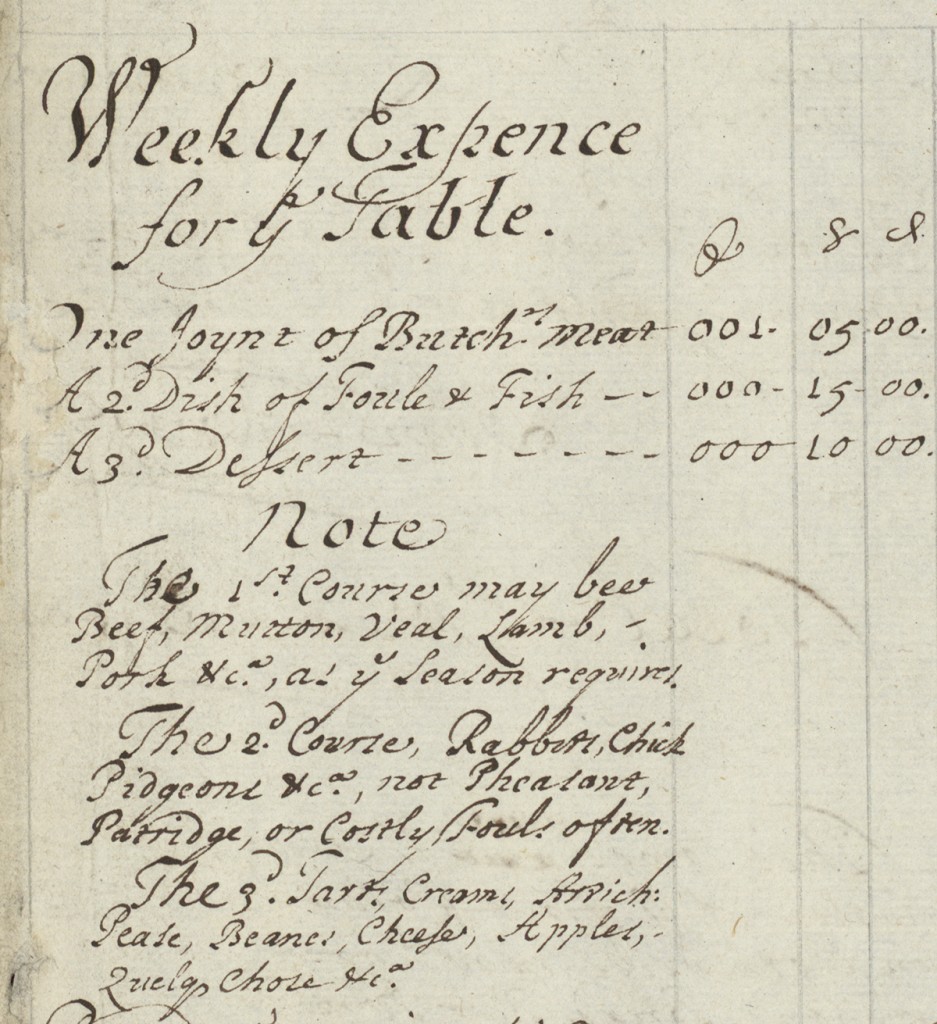 Weekly Expence
for yᵉ Table.
£ s d
One Joynt of Butchʳˢ meat 001- 05 00.
A 2ᵈ. Dish of Foule & Fish -- 000- 15- 00.
A 3ᵈ. Dessert ------- 000 10 00.
Note
The 1ˢᵗ. Course may bee
Beef, Mutton, Veal, Lamb, -
Pork &cᵃ, as yᵉ Season requires.
The 2ᵈ. Course, Rabbits, Chick
Pidgeons &cᵃ, not Pheasant,
Patridge, or Costly Fouls often.
The 3ᵈ. Tarts, Creams, Artich:
Pease, Beanes, Cheese, Apples, -
Quelq Chose &cᵃ